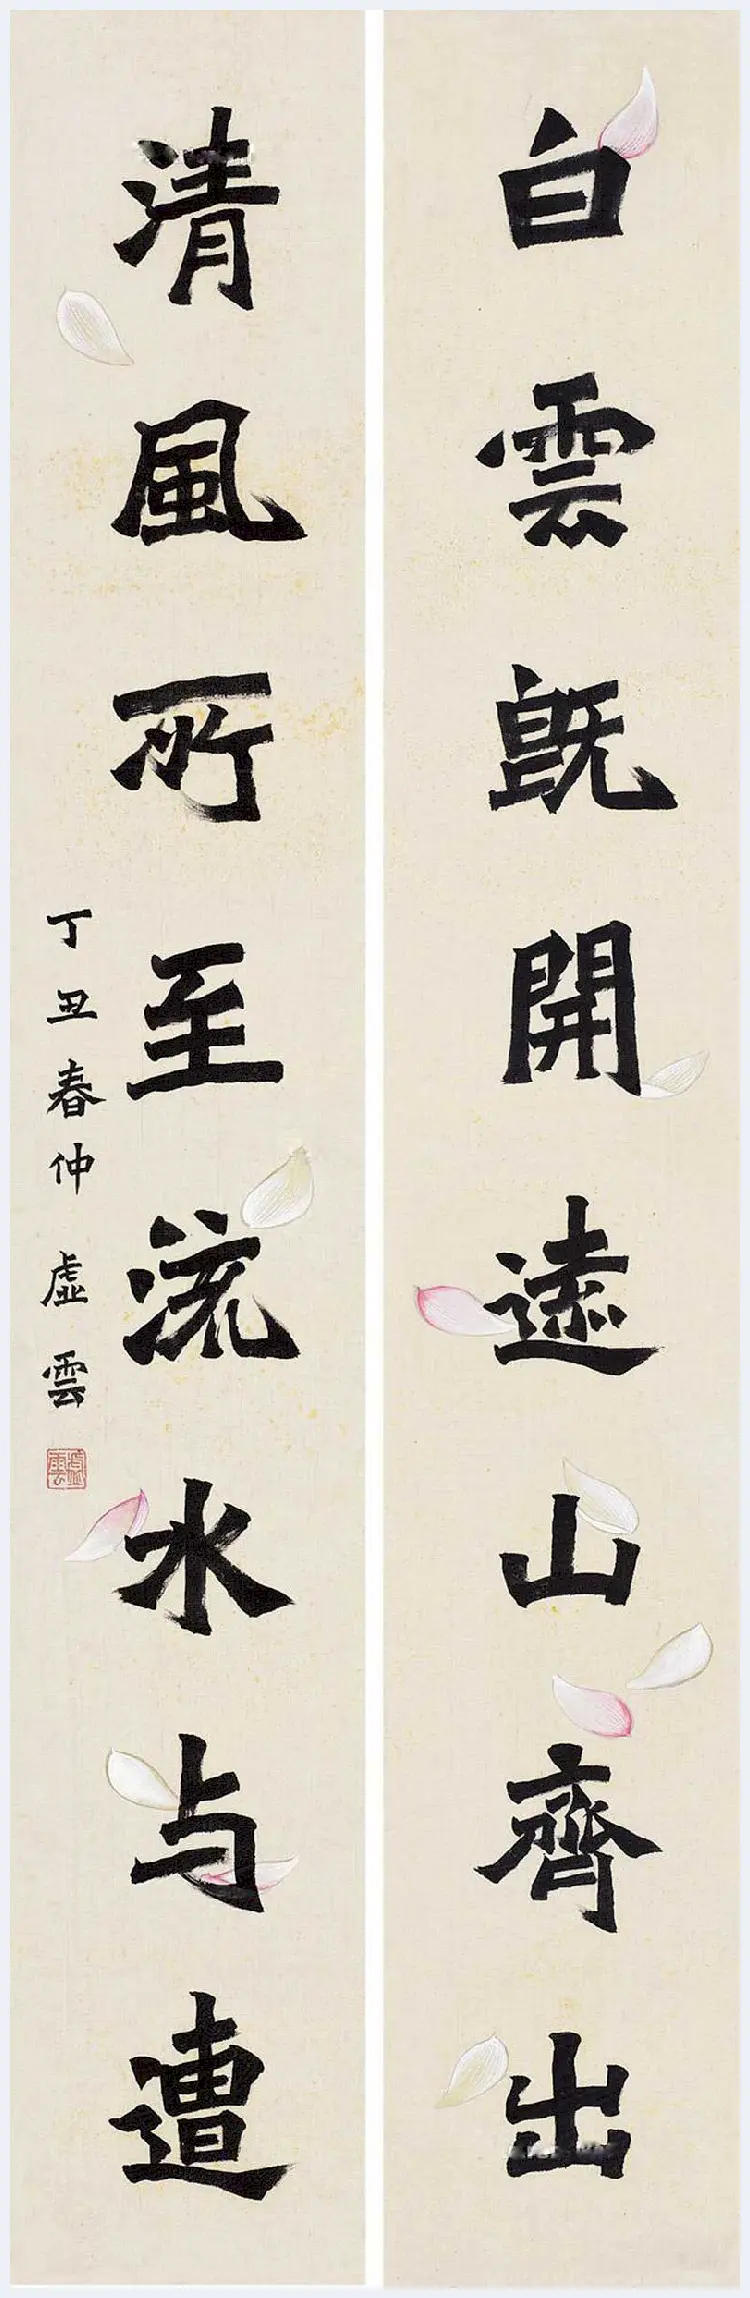 白雲既開遠山齊出
清風所至流水与遭
丁丑春仲 虛雲
虛雲